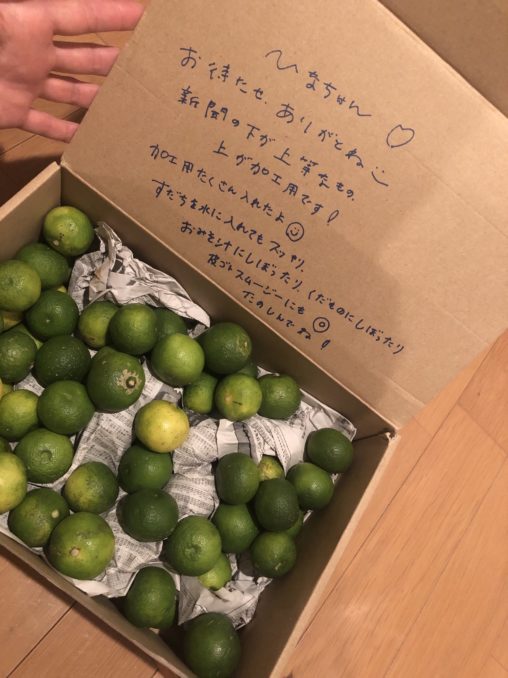 ひまちゃん♡
お待たせ、ありがとね
新聞の下が上等なもの、
上が加工用です!
加工用たくさん入れたよ
すだちを水に入れてもスッキリ
おみそシナにしぼったり、くだものにしぼったり
皮ごとスムージーにも
たのしんでね!